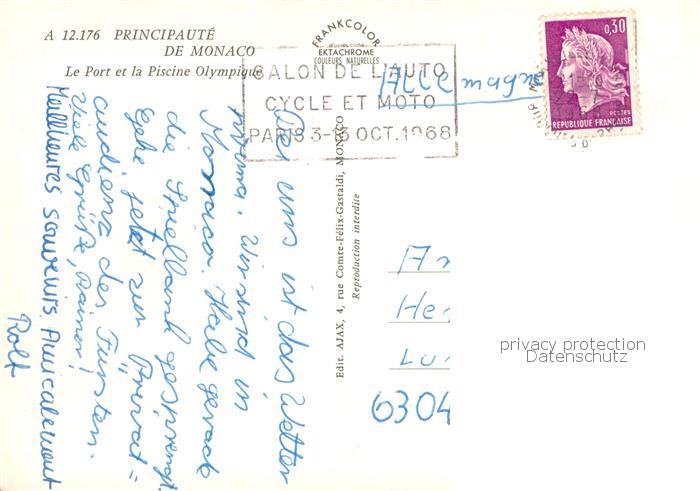 A 12.176 PRINCIPAUTÉ
DE MONACO
Le Port et la Piscine Olympique
FRANKCOLOR
EKTACHROME
COULEURS NATURELLES
SALON DE L'AUTO
CYCLE ET MOTO
PARIS 3-13 OCT. 1968
0,30
POSTES
REPUBLIQUE FRANÇAISE
Allemagne
Bei uns ist das Wetter
prima. Wir sind in
Monaco. Habe gerade
die Spielbank gesprengt.
Gehe jetzt zur Privat=
audienz des Fürsten.
Viele Grüße, Rainer!
Meilleures souvenirs Amicalement
Rolf
Edit. AJAX, 4, rue Comte-Félix-Gastaldi, MONACO
Reproduction interdite
An
Her
Lu
6304
privacy protection
Datenschutz